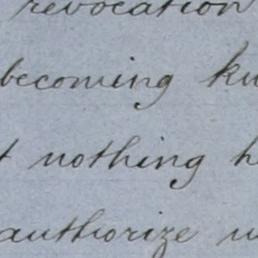 revocation
becoming
nothing
authorize